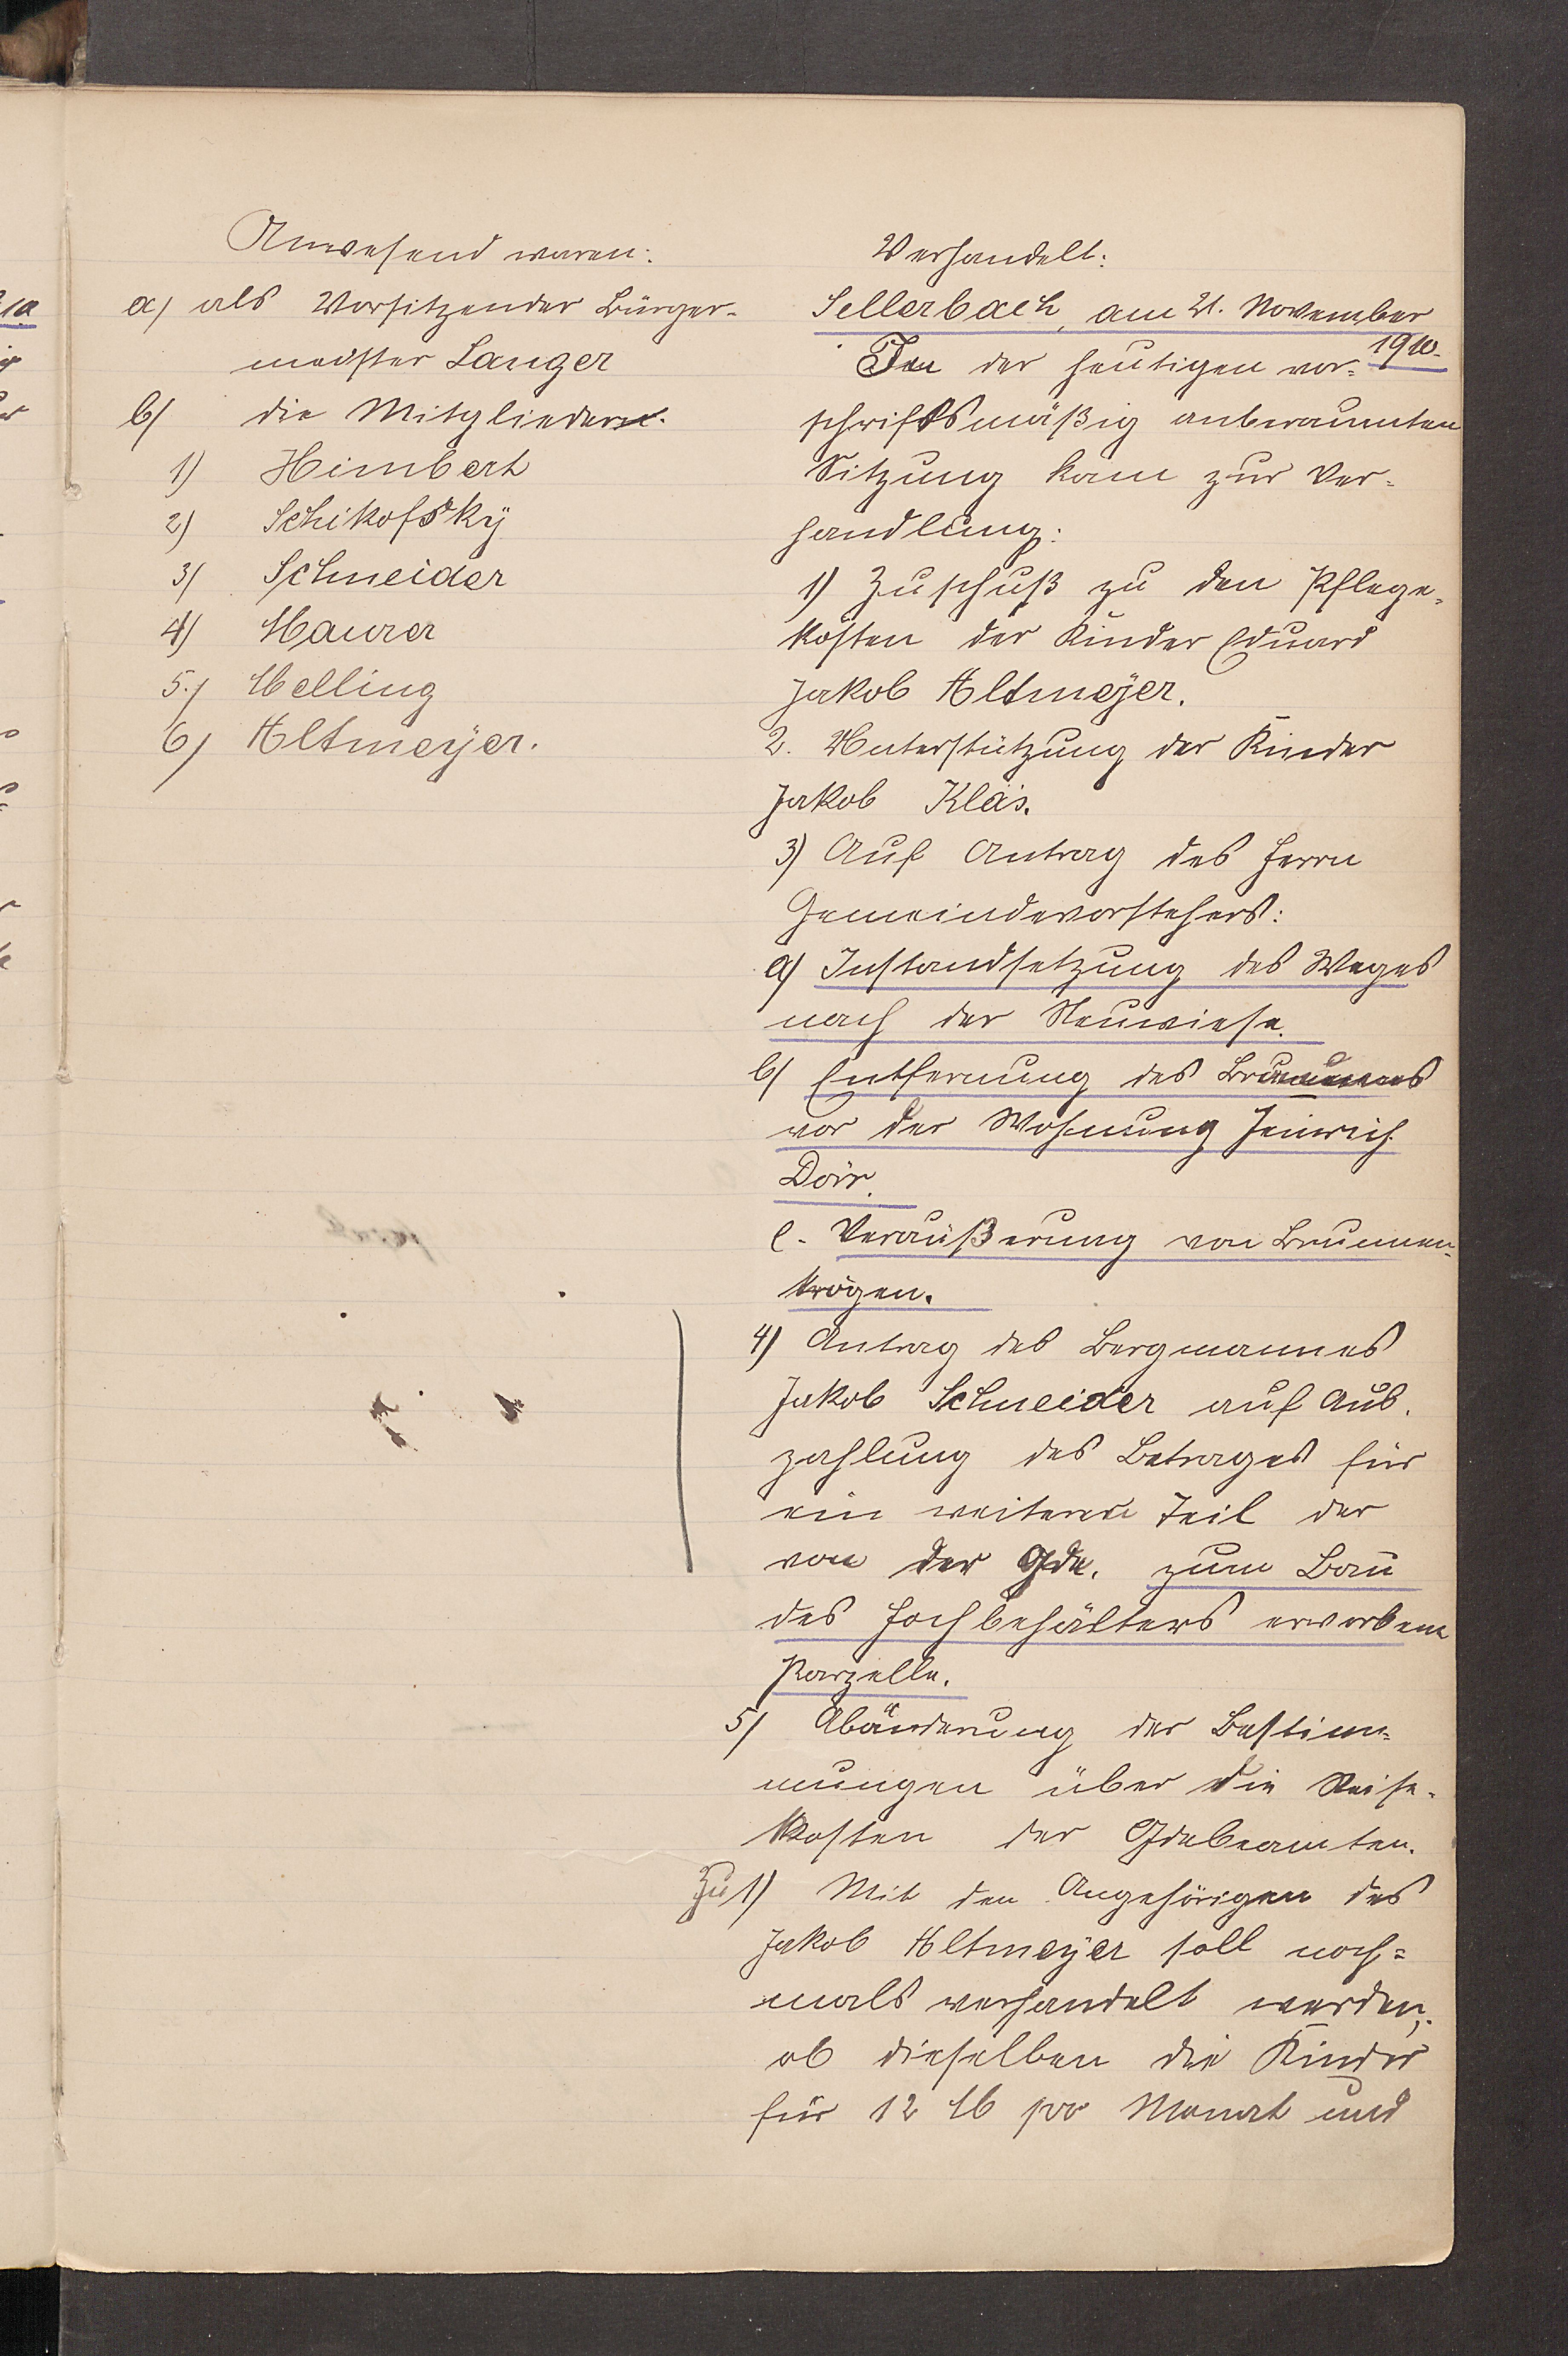 Anwesend waren:
a) als Vorsitzender Bürger-
meister Langer
b) die Mitglieder:
1) Himbert
2) Schikofsky
3) Schneider
4) Maurer
5.) Melling
6) Altmeyer.
Verhandelt:
Sellerbach, am 21. November
1910.
In der heutigen vor-
schriftsmäßig anberaumten
Sitzung kam zur Ver-
handlung:
1) Zuschuß zu den Pflege-
kosten der Kinder Eduard
Jakob Altmeyer.
2. Unterstützung der Kinder
Jakob Kläs.
3) Auf Antrag des Herrn
Gemeindevorstehers:
a) Instandsetzung des Weges
nach der Neuwiese.
b) Entfernung des
vor der Wohnung Heinrich
Dörr.
c. Veräußerung von Brunnen-
trögen.
4) Antrag des Bergmannes
Jakob Schneider auf Aus-
zahlung des Betrages für
ein weiteren Teil der
von der Gde. zum Bau
des Hochbehälters erworbene
Parzelle.
5) Abänderung der Bestim-
mungen über die Reise-
kosten der Gdebeamten.
Zu 1) Mit den Angehörigen des
Jakob Altmeyer soll noch-
mals verhandelt werden,
ob dieselben die Kinder
für 12 M pro Monat und